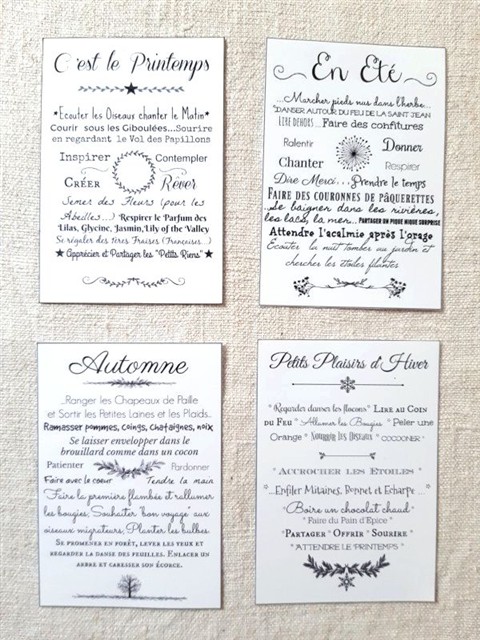 C'est le Printemps
*Ecouter les Oiseaux chanter le Matin*
Courir sous les Giboulées...Sourire
en regardant le Vol des Papillons
Inspirer Contempler
CRÉER Rêver
Semer des Fleurs (pour les
Abeilles...) Respirer le Parfum des
Lilas, Glycine, Jasmin, Lily of the Valley
Se régaler des 1ères Fraises (Françaises...)
★ Apprécier et Partager les "Petits Riens" ★
En Eté
...Marcher pieds nus dans l'herbe...
*DANSER AUTOUR DU FEU DE LA SAINT JEAN
LIRE DEHORS...Faire des confitures
Ralentir Donner
Chanter Respirer
Dire Merci... Prendre le temps
FAIRE DES COURONNES DE PÂQUERETTES
...Se baigner dans les rivières,
les lacs, la mer...PARTAGER UN PIQUE NIQUE SURPRISE
Attendre l'acalmie après l'orage
Ecouter la nuit tomber au jardin et
chercher les étoiles filantes
Automne
...Ranger les Chapeaux de Paille
et Sortir les Petites Laines et les Plaids...
Ramasser pommes, coings, chataignes, noix
Se laisser envelopper dans le
brouillard comme dans un cocon
Patienter Pardonner
Faire avec le coeur Tendre la main
Faire la première flambée et rallumer
les bougies, Souhaiter "bon voyage" aux
oiseaux migrateurs, Planter les bulbes.
SE PROMENER EN FORÊT, LEVER LES YEUX ET
REGARDER LA DANSE DES FEUILLES. ENLACER UN
ARBRE ET CARESSER SON ÉCORCE.
Petits Plaisirs d'Hiver
* Regarder danser les flocons * LIRE AU COIN
DU FEU * Allumer les Bougies * Peler une
Orange * Nourrir les Oiseaux * COCOONER *
* ACCROCHER LES ETOILES *
*...Enfiler Mitaines, Bonnet et Echarpe ...*
* Boire un chocolat chaud *
* Faire du Pain d'Epice *
* PARTAGER * OFFRIR * SOURIRE *
* ATTENDRE LE PRINTEMPS *